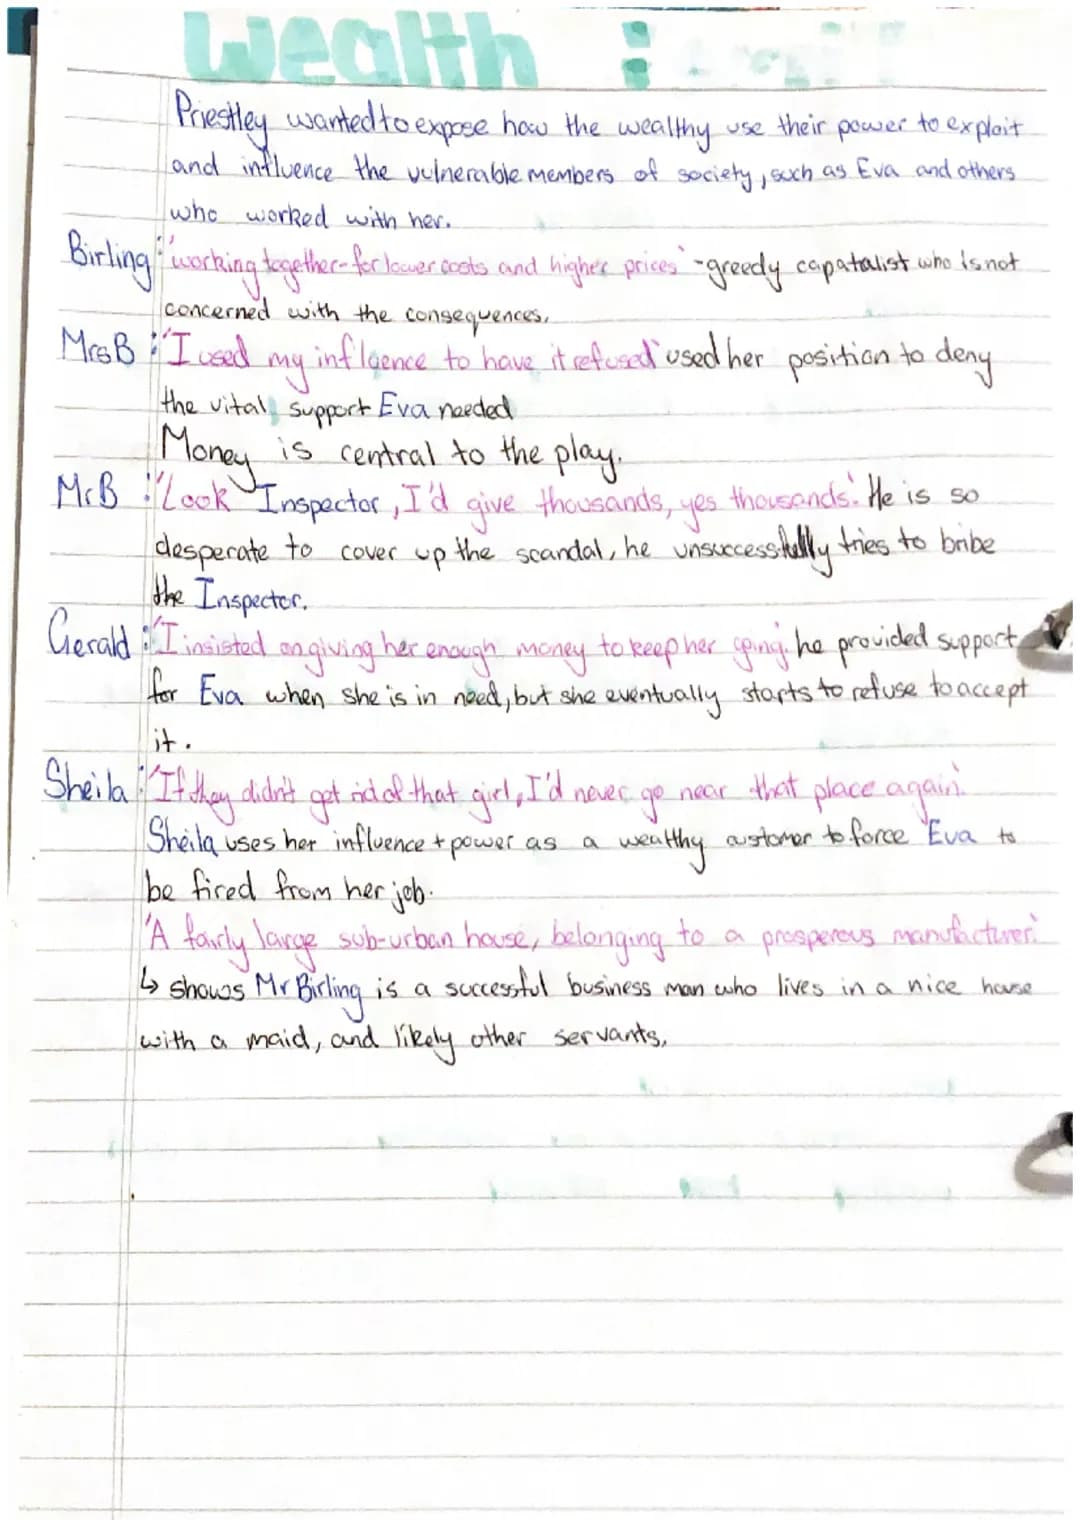 Wealth :
Priestley wanted to expose how the wealthy use their power to exploit
and influence the vulnerable members of society, such as Eva and others
who worked with her.
Birling : 'working together-for lower costs and higher prices' -greedy capatalist who is not
concerned with the consequences.
Mrs B : 'I used my influence to have it refused' used her position to deny
the vital support Eva needed
Money is central to the play.
Mr B : 'Look Inspector, I'd give thousands, yes thousands.' He is so
desperate to cover up the scandal, he unsuccessfully tries to bribe
the Inspector.
Gerald : 'I insisted on giving her enough money to keep her going.' he provided support
for Eva when she is in need, but she eventually starts to refuse to accept
it.
Sheila : 'If they didn't get rid of that girl, I'd never go near that place again.'
Sheila uses her influence + power as a wealthy customer to force Eva to
be fired from her job.
'A fairly large sub-urban house, belonging to a prosperous manufacturer.'
↳ shows Mr Birling is a successful business man who lives in a nice house
with a maid, and likely other servants.